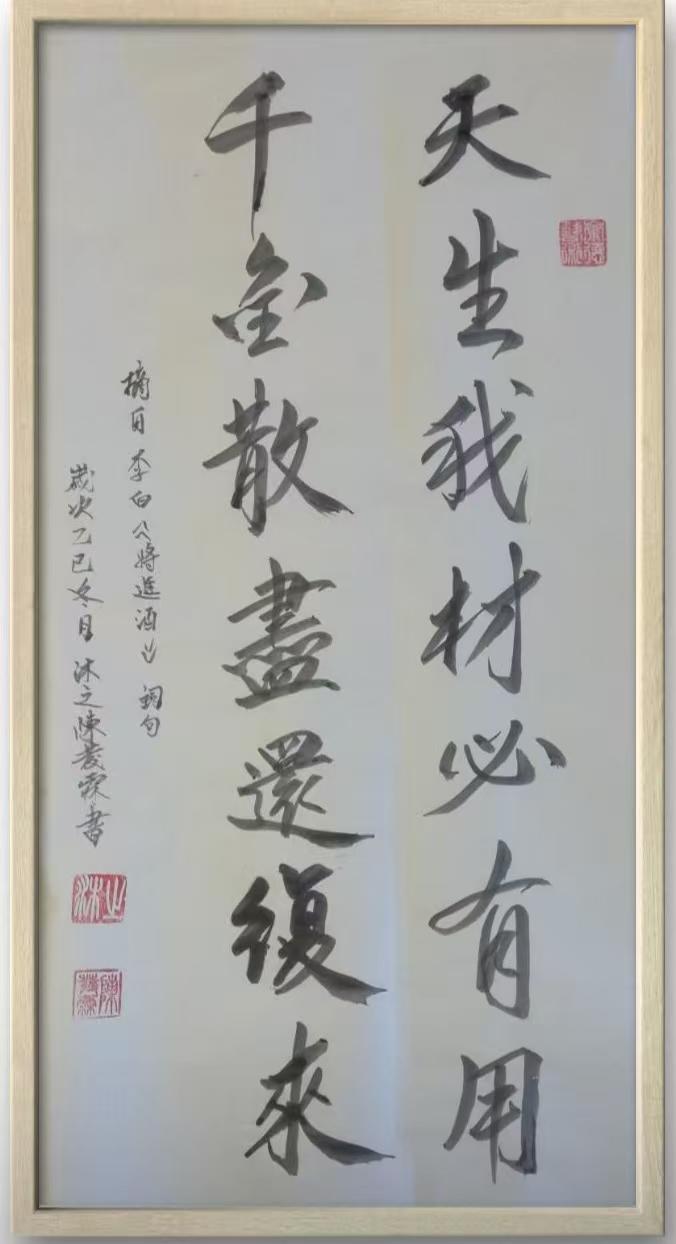 天生我材必有用
千金散盡還復來
摘自李白《將進酒》詞句
歲次乙巳冬月沐之陳 書
沐之